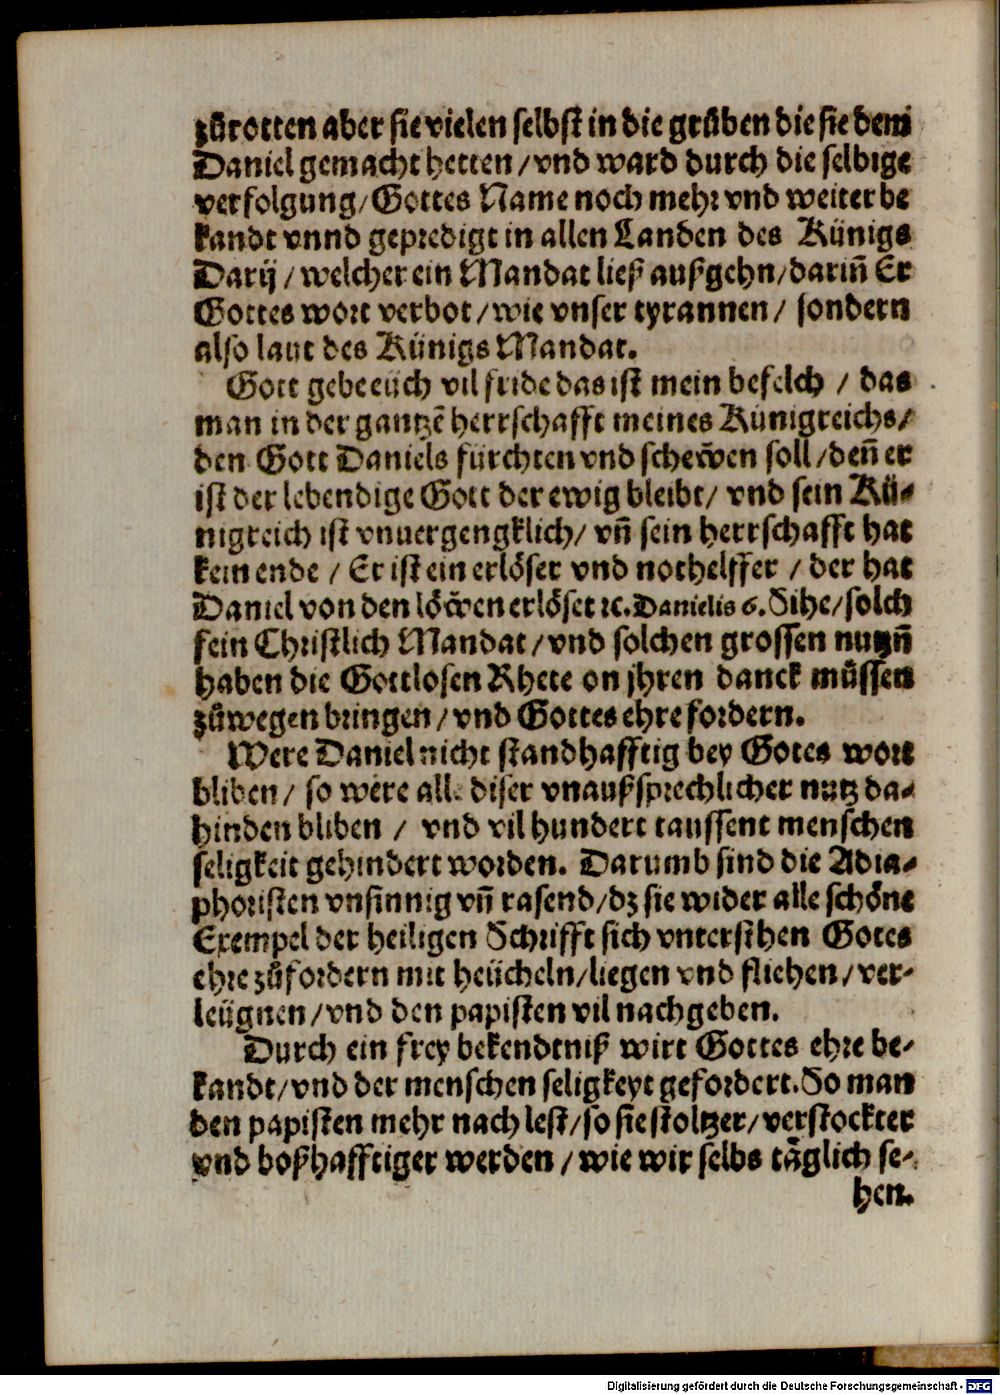 zůrotten aber sie vielen selbst in die grůben die sie dem
Daniel gemacht hetten / vnd ward durch die selbige
verfolgung / Gottes Name noch mehr vnd weiter be
kandt vnnd gepredigt in allen Landen des Künigs
Darij / welcher ein Mandat ließ außgehn / darin̄ Er
Gottes wort verbot / wie vnser tyrannen / sondern
also laut des Künigs Mandat.
Gott gebe eüch vil fride das ist mein befelch / das
man in der gantzē herrschafft meines Künigreichs /
den Gott Daniels fürchten vnd schewen soll / den̄ er
ist der lebendige Gott der ewig bleibt / vnd sein Kü⸗
nigreich ist vnuergengklich / vn̄ sein herrschafft hat
kein ende / Er ist ein erlöser vnd nothelffer / der hat
Daniel von den löwen erlöset ꝛc. Danielis 6. Sihe / solch
fein Christlich Mandat / vnd solchen grossen nutzn̄
haben die Gottlosen Rhete on jhren danck müssen
zůwegen bringen / vnd Gottes ehre fordern.
Were Daniel nicht standhafftig bey Gotes wort
bliben / so were alle diser vnaußsprechlicher nutz da⸗
hinden bliben / vnd vil hundert taussent menschen
seligkeit gehindert worden. Darumb sind die Adia⸗
phoristen vnsinnig vn̄ rasend / dz sie wider alle schöne
Exempel der heiligen Schrifft sich vntersthen Gotes
ehre zůfordern mit heücheln / liegen vnd fliehen / ver⸗
leügnen / vnd den papisten vil nachgeben.
Durch ein frey bekendtniß wirt Gottes ehre be⸗
kandt / vnd der menschen seligkeyt gefordert. So man
den papisten mehr nach lest / so sie stoltzer / verstockter
vnd boßhafftiger werden / wie wir selbs täglich se⸗
hen.
Digitalisierung gefördert durch die Deutsche Forschungsgemeinschaft - DFG